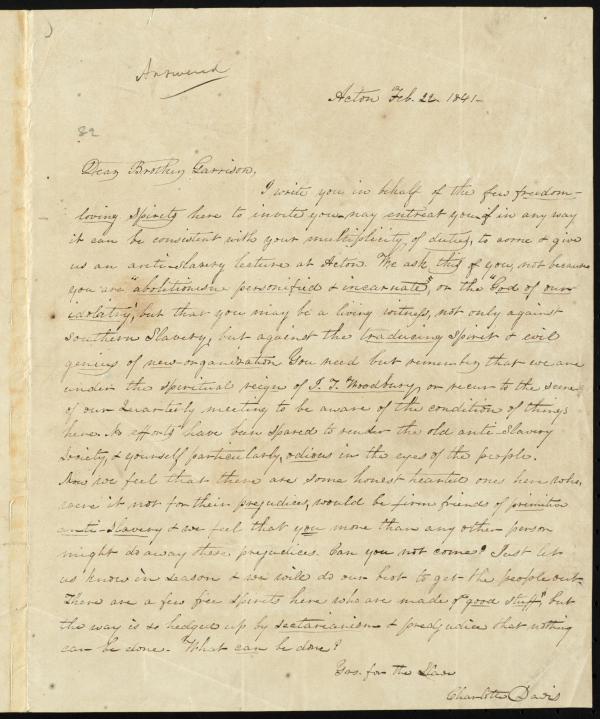 Answered
Acton Feb. 22. 1841-
82
Dear Brother Garrison,
I write you in behalf of the few freedom-
loving spirits here to invite you, nay intreat you, if in any way
it can be consistent with your multiplicity of duties, to come & give
us an anti-slavery lecture at Acton. We ask this of you, not because
you are "abolitionism personified & incarnate", or the "God of our
idolatry", but that you may be a living witness, not only against
Southern Slavery, but against the traducing spirit & evil
genius of new-organization. You need but remember that we are
under the spiritual reign of J. T. Woodbury, or recur to the scene
of our Quarterly meeting to be aware of the condition of things
here. No efforts have been spared to render the old anti-Slavery
Society, & yourself particularly, odious in the eyes of the people.
Now we feel that there are some honest hearted ones here who,
were it not for their prejudices, would be firm friends of primitive
anti-Slavery & we feel that you more than any other person
might do away these prejudices. Can you not come? Just let
us know in season & we will do our best to get the people out.
There are a few free spirits here who are made of "good stuff", but
the way is so hedged up by sectarianism & predjudice that nothing
can be done. What can be done?
Yrs. for the Slave
Charlotte Davis